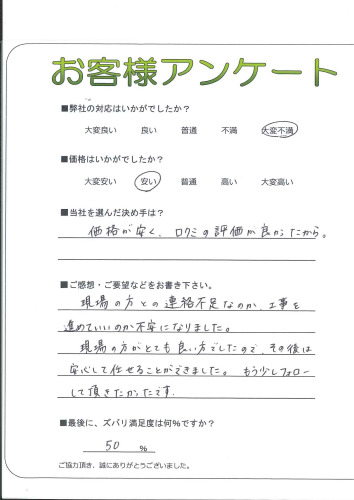 お客様アンケート
■弊社の対応はいかがでしたか？
大変良い 良い 普通 不満 大変不満
■価格はいかがでしたか？
大変安い 安い 普通 高い 大変高い
■当社を選んだ決め手は？
価格が安く、口クミの評価が良かったから。
■ご感想・ご要望などをお書き下さい。
現場の方との連絡不足なのか、工事を
進めていいのか不安になりました。
現場の方がとても良い方でしたので、その後は
安心して任せることができました。もう少しフォロー
して頂きたかったです。
■最後に、ズバリ満足度は何％ですか？
50 ％
ご協力頂き、誠にありがとうございました。